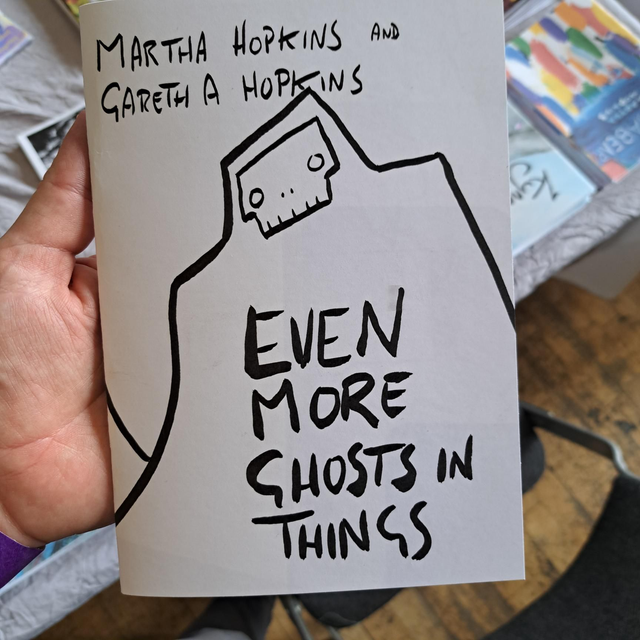 MARTHA HOPKINS AND
GARETH A HOPKINS
EVEN
MORE
GHOSTS IN
THINGS